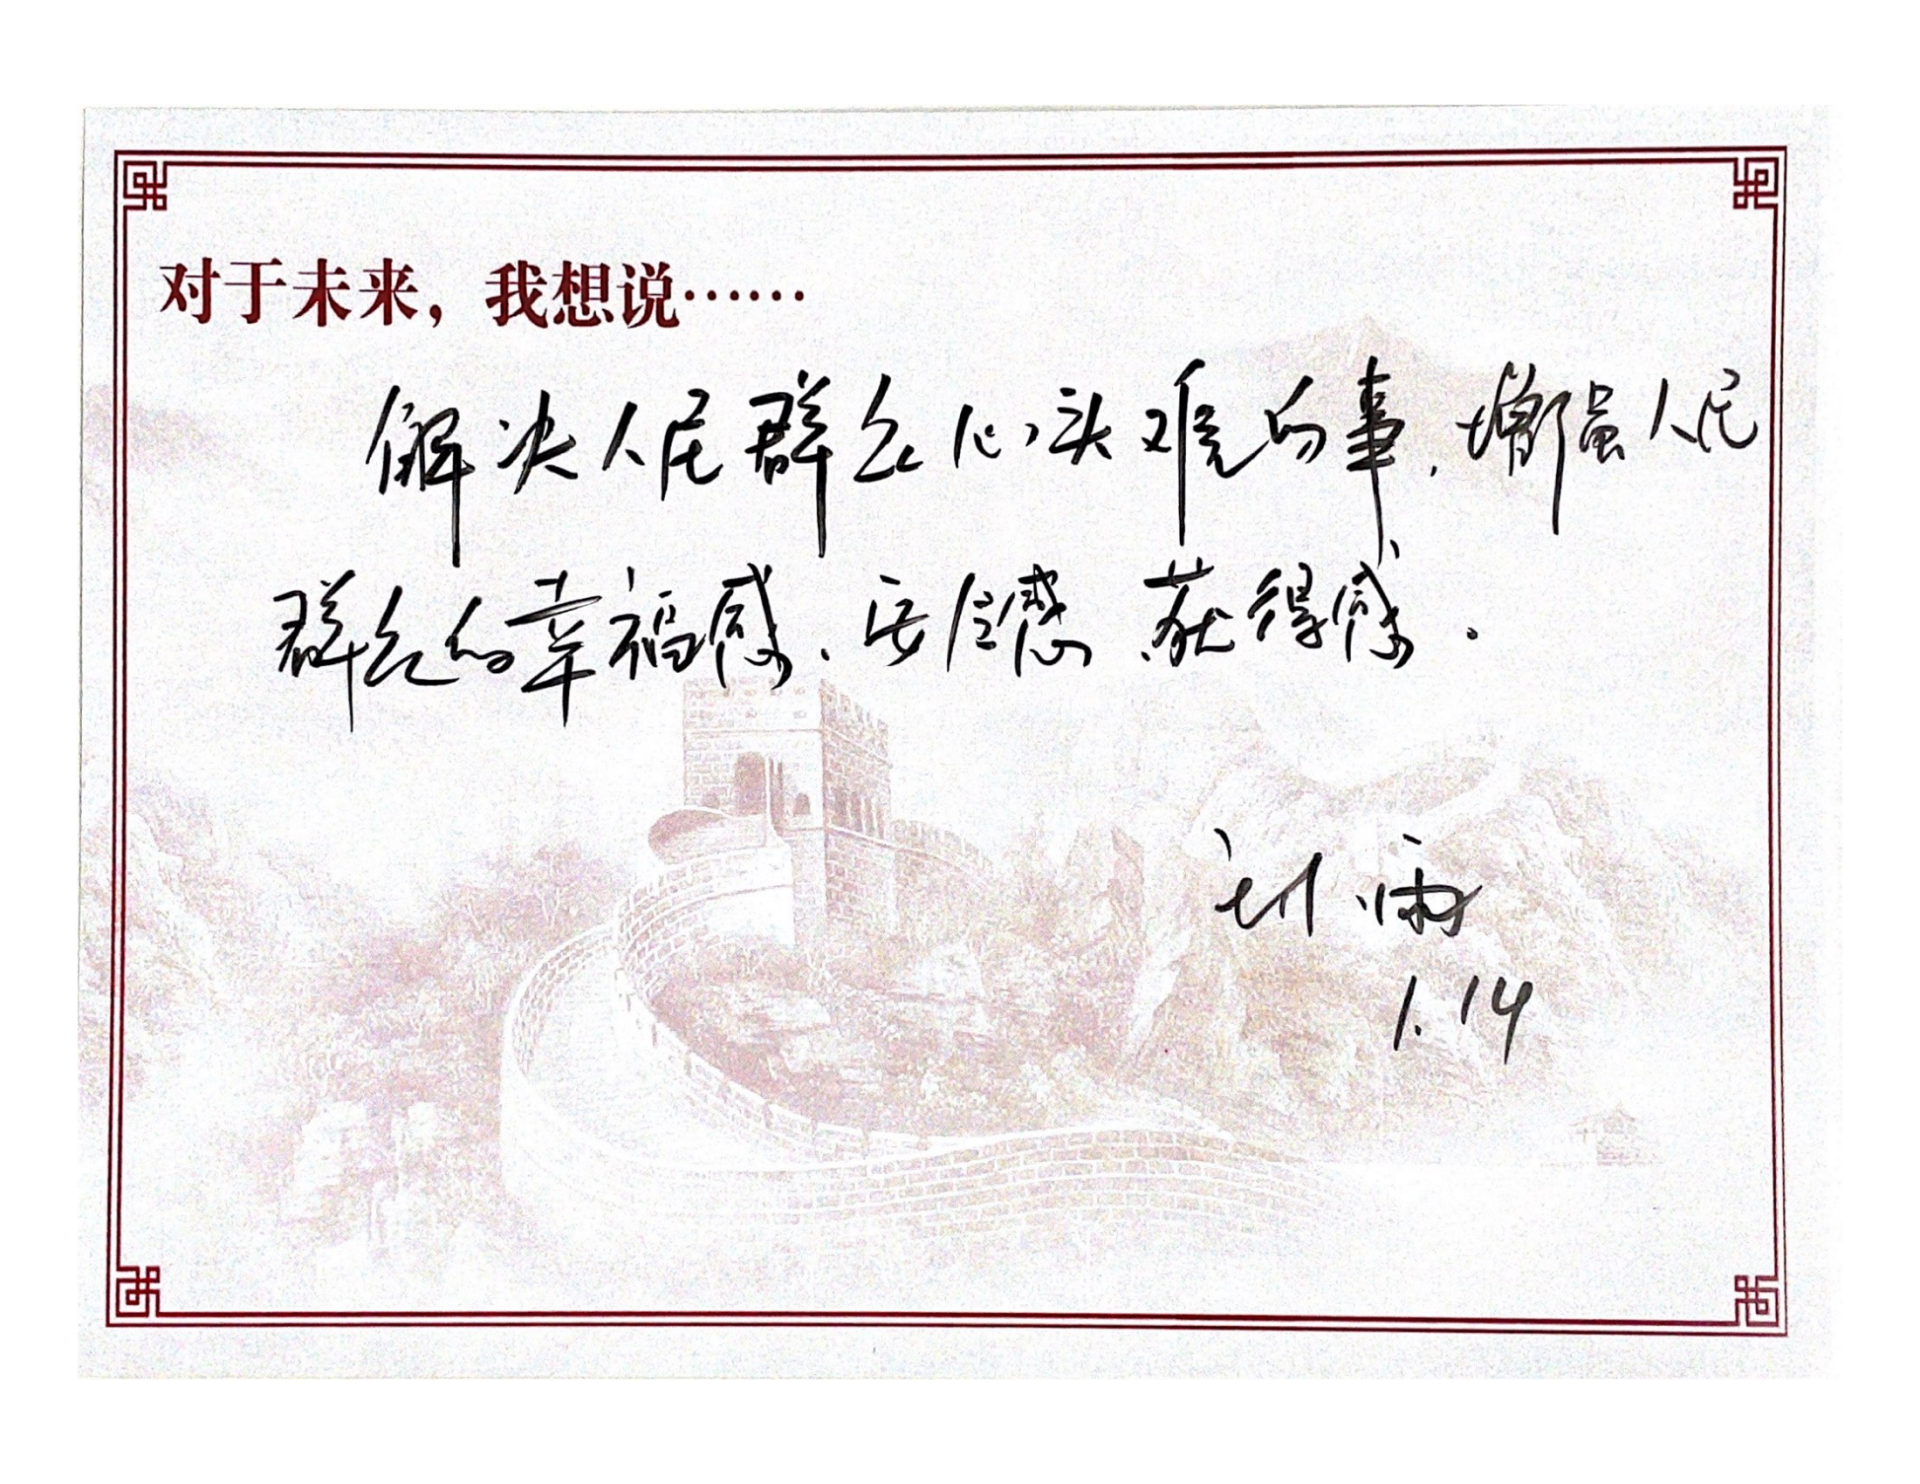 对于未来，我想说……
解决人民群众心头难的事，增强人民
群众的幸福感、安全感 获得感．
刘雨
1.14